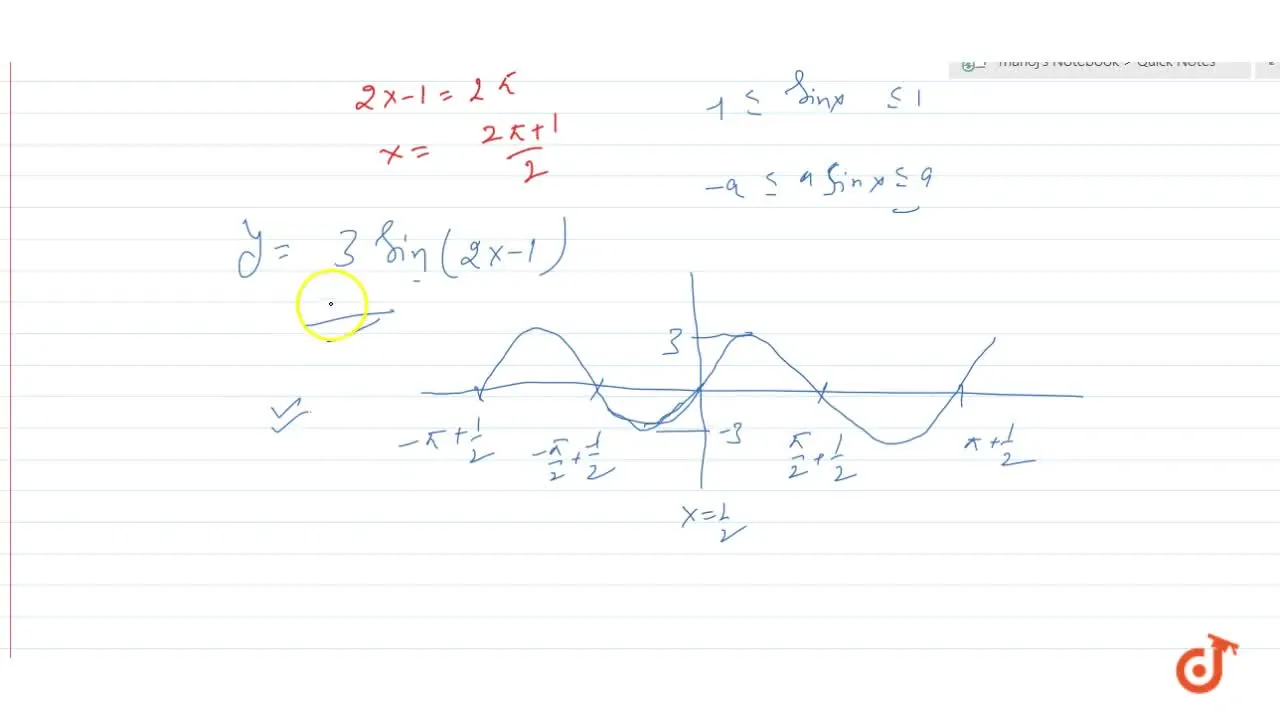 manoj's Notebook > Quick Notes
2x-1 = 2π
x = (2π+1)/2
1 ≤ sinx ≤ 1
-a ≤ a sinx ≤ a
y = 3 sin(2x-1)
3
-3
-π+1/2
-π/2+1/2
π/2+1/2
π+1/2
x=1/2